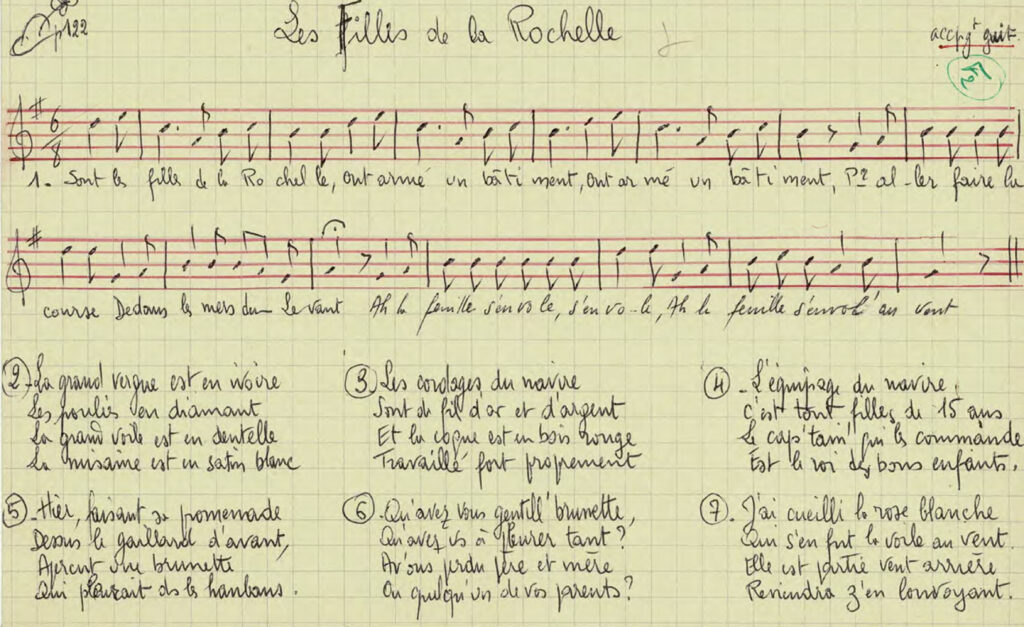 p122
Les Filles de la Rochelle
accpgt guit.
6
8
1. Sont les filles de la Ro chel le, ont armé un bâti ment, ont ar mé un bâ ti ment, Pr al-ler faire la
course Dedans les mers du Levant Ah la feuille s'en vo le, s'en vo-le, Ah la feuille s'envol' au vent
② - La grand vergue est en ivoire
Les poulies en diamant
La grand voile est en dentelle
La misaine est en satin blanc
③ Les cordages du navire
Sont de fil d'or et d'argent
Et la coque est en bois rouge
Travaillé fort proprement
④ - L'équipage du navire,
C'est tout filles de 15 ans
Le cap'tain' qui les commande
Est le roi des bons enfants.
⑤ - Hier, faisant sa promenade
Dessus le gaillard d'avant,
Aperçut une brunette
Qui pleurait ds les haubans.
⑥ - Qu'avez vous gentill' brunette,
Qu'avez vs à pleurer tant ?
Av'ous perdu père et mère
Ou quelqu'un de vos parents ?
⑦ . J'ai cueilli la rose blanche
Qui s'en fut la voile au vent.
Elle est partie vent arrière
Reviendra z'en louvoyant.